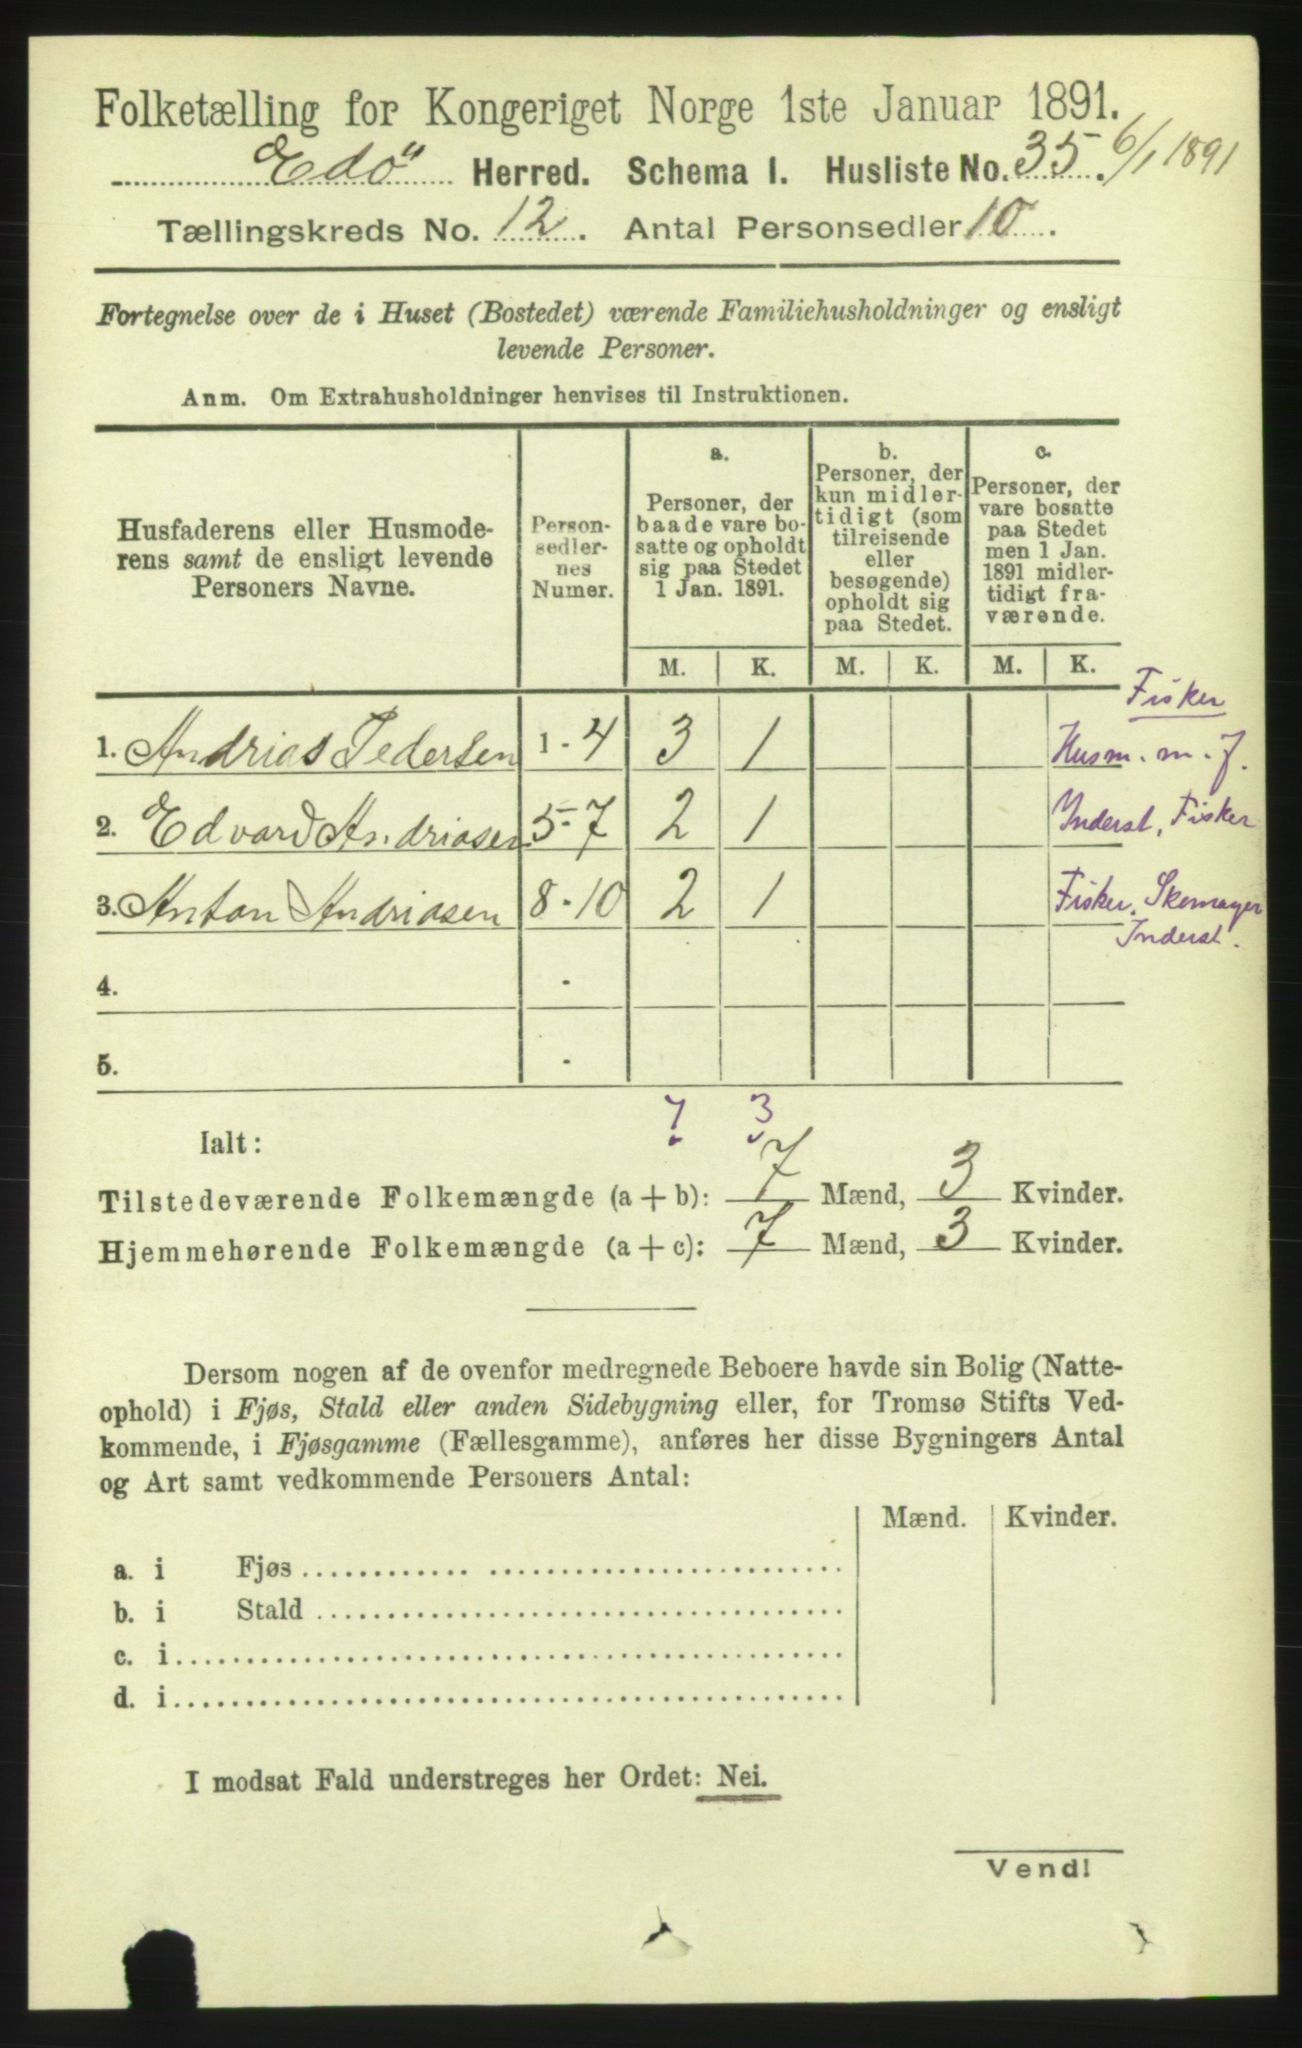 Folketælling for Kongeriget Norge 1ste Januar 1891.
Edö Herred. Schema I. Husliste No. 35. 6/1 1891
Tællingskreds No. 12. Antal Personsedler 10.
Fortegnelse over de i Huset (Bostedet) værende Familiehusholdninger og ensligt
levende Personer.
Anm. Om Extrahusholdninger henvises til Instruktionen.
Husfaderens eller Husmode-
rens samt de ensligt levende
Personers Navne.
Person-
sedler-
nes
Numer.
a.
Personer, der
baade vare bo-
satte og opholdt
sig paa Stedet
1 Jan. 1891.
b.
Personer, der
kun midler-
tidigt (som
tilreisende
eller
besøgende)
opholdt sig
paa Stedet.
c.
Personer, der
vare bosatte
paa Stedet
men 1 Jan.
1891 midler-
tidigt fra-
værende.
M. K. M. K. M. K.
Fisker
1. Andrias Pedersen 1 - 4 3 1 Husm. m. J.
2. Edvard Andriasen 5 - 7 2 1 Inderst, Fisker
3. Anton Andriasen 8 - 10 2 1 Fisker, Skomager
Inderst.
4. -
5. -
7 3
Ialt:
Tilstedeværende Folkemængde (a + b): 7 Mænd, 3 Kvinder.
Hjemmehørende Folkemængde (a + c): 7 Mænd, 3 Kvinder.
Dersom nogen af de ovenfor medregnede Beboere havde sin Bolig (Natte-
ophold) i Fjøs, Stald eller anden Sidebygning eller, for Tromsø Stifts Ved-
kommende, i Fjøsgamme (Fællesgamme), anføres her disse Bygningers Antal
og Art samt vedkommende Personers Antal:
Mænd. Kvinder.
a. i Fjøs
b. i Stald
c. i
d. i
I modsat Fald understreges her Ordet: Nei.
Vend!